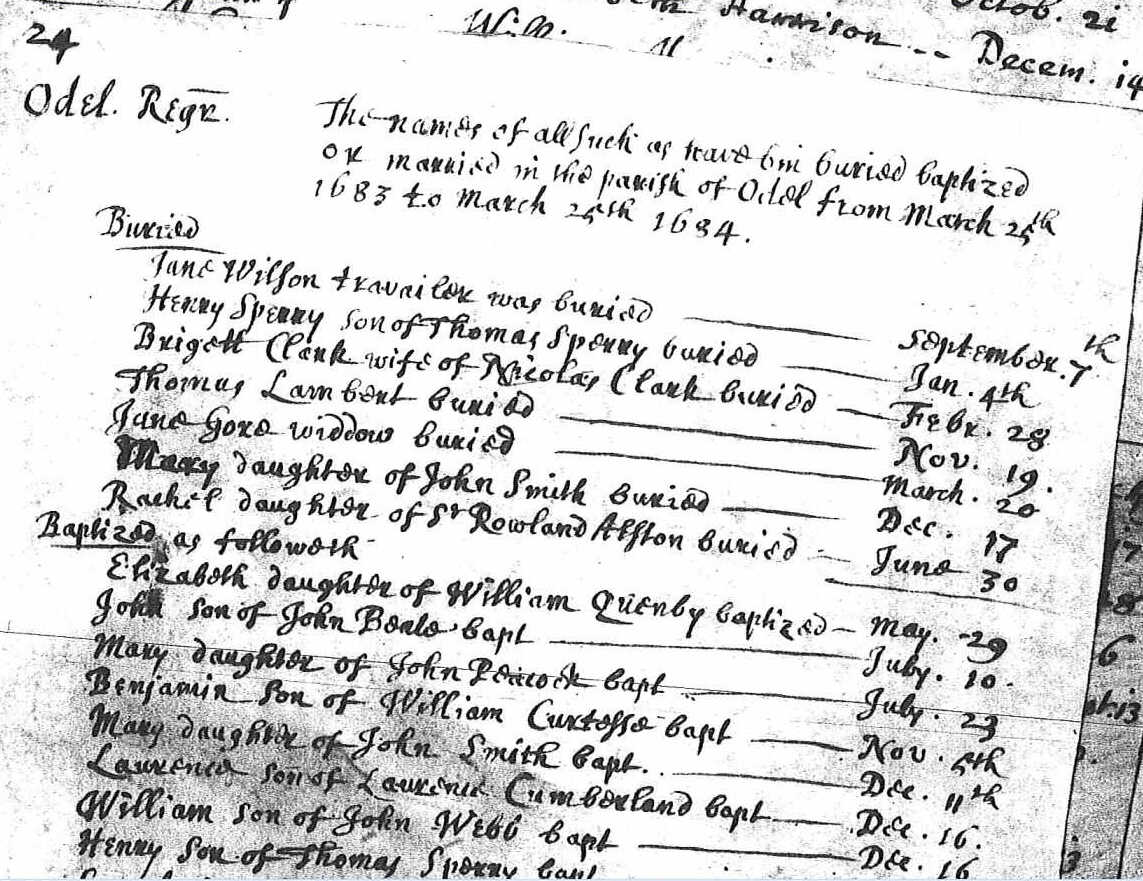 Harrison -- Octob. 21
Will. Decem. 14
24
Odel. Regr.
The names of all such as have bin buried baptized
or married in the parish of Odel from March 25th
1683 to March 25th 1684.
Buried
Jane Wilson travailer was buried September. 7th
Henry Sperry son of Thomas Sperry buried Jan. 4th
Brigett Clark wife of Nicolas Clark buried Febr. 28
Thomas Lambert buried Nov. 19.
Jane Gore widdow buried March. 20
Mary daughter of John Smith buried Dec. 17
Rachel daughter of Sr Rowland Alston buried June 30
Baptized as followeth
Elizabeth daughter of William Quenby baptized May. 29
John son of John Beale bapt July. 10.
Mary daughter of John Peacock bapt July. 23
Benjamin son of William Curtesse bapt Nov. 5th
Mary daughter of John Smith bapt. Dec. 11th
Laurence son of Laurence Cumberland bapt Dec. 16.
William son of John Webb bapt Dec. 16
Henry son of Thomas Sperry bapt